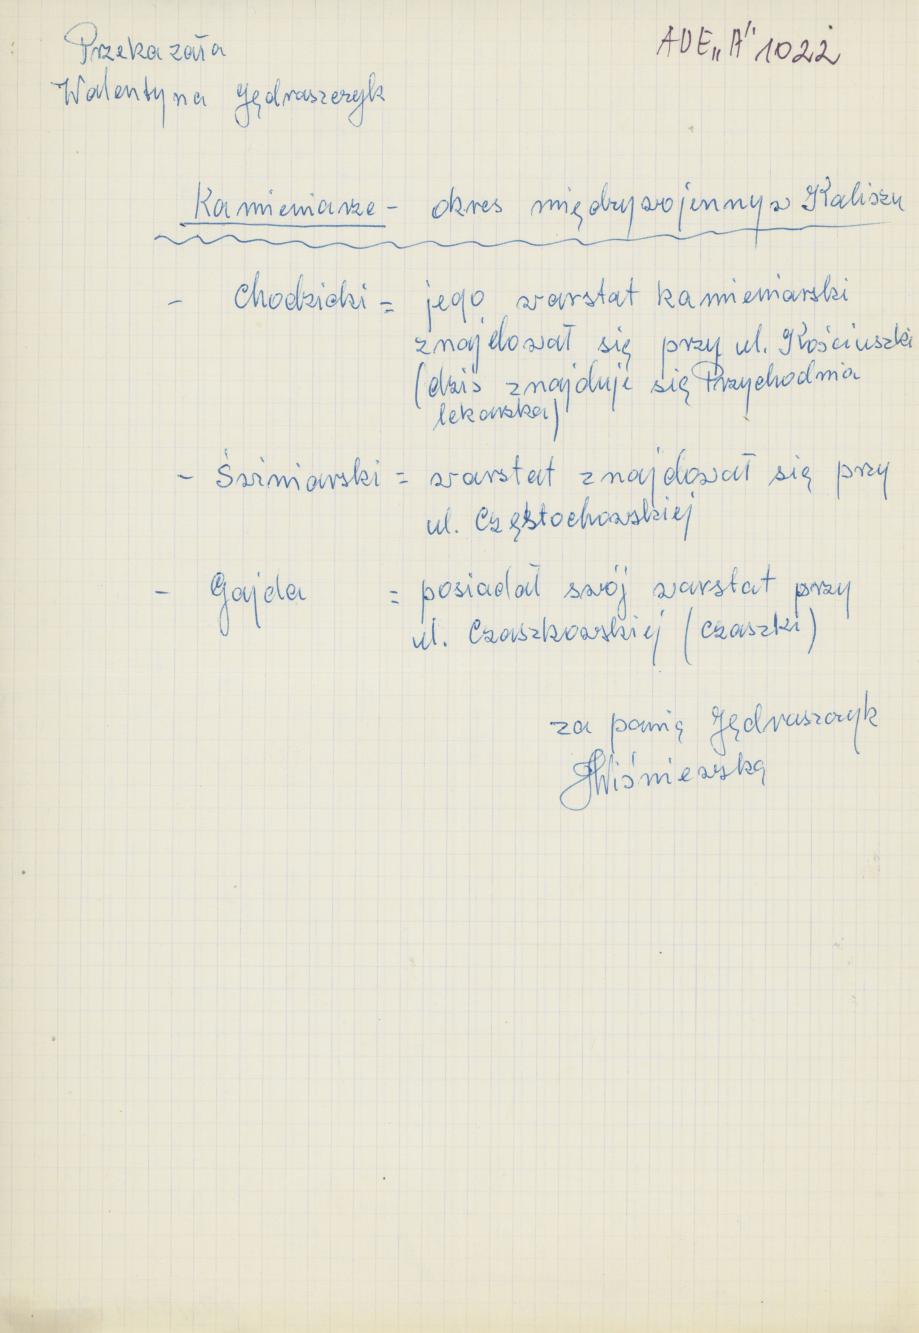 Przekazała
ADE „A" 1022
Walentyna Jędraszczyk
Kamieniarze - okres międzywojenny w Kaliszu
- Chodzicki = jego warstat kamieniarski
znajdował się przy ul. Kościuszki
(dziś znajduje się Przychodnia
lekarska)
- Świniarski = warstat znajdował się przy
ul. Częstochowskiej
- Gajda = posiadał swój warstat przy
ul. Czaszkowskiej (czaszki)
za panią Jędraszczyk
HWiśniewska